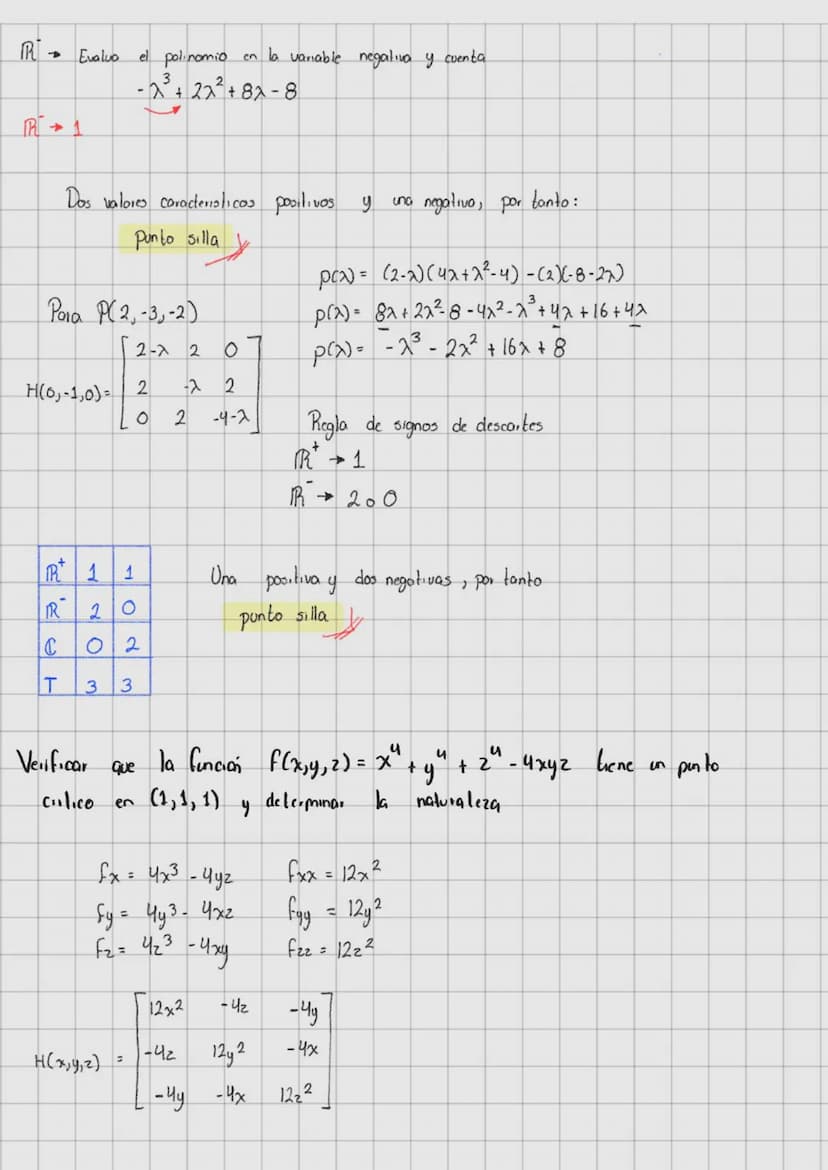 ℝ⁻ → Evaluo el polinomio en la variable negativa y cuenta
-λ³ + 2λ² + 8λ - 8
ℝ⁻ → 1
Dos valores caracteristicos positivos y una negativo, por tanto:
punto silla
p(λ) = (2-λ)(4λ+λ²-4) - (2)(-8-2λ)
Para P(2,-3,-2)
p(λ) = 8λ + 2λ² - 8 - 4λ² - λ³ + 4λ + 16 + 4λ
p(λ) = -λ³ - 2λ² + 16λ + 8
H(0,-1,0) =
2-λ 2 0
2 -λ 2
0 2 -4-λ
Regla de signos de descartes
ℝ⁺ → 1
ℝ⁻ → 2 o 0
ℝ⁺ 1 1
ℝ⁻ 2 0
ℂ 0 2
T 3 3
Una positiva y dos negativas, por tanto
punto silla
Verificar que la función f(x,y,z) = x⁴ + y⁴ + z⁴ - 4xyz tiene un punto
critico en (1,1,1) y determinar la naturaleza
fx = 4x³ - 4yz fxx = 12x²
fy = 4y³ - 4xz fyy = 12y²
fz = 4z³ - 4xy fzz = 12z²
H(x,y,z) =
12x² -4z -4y
-4z 12y² -4x
-4y -4x 12z²